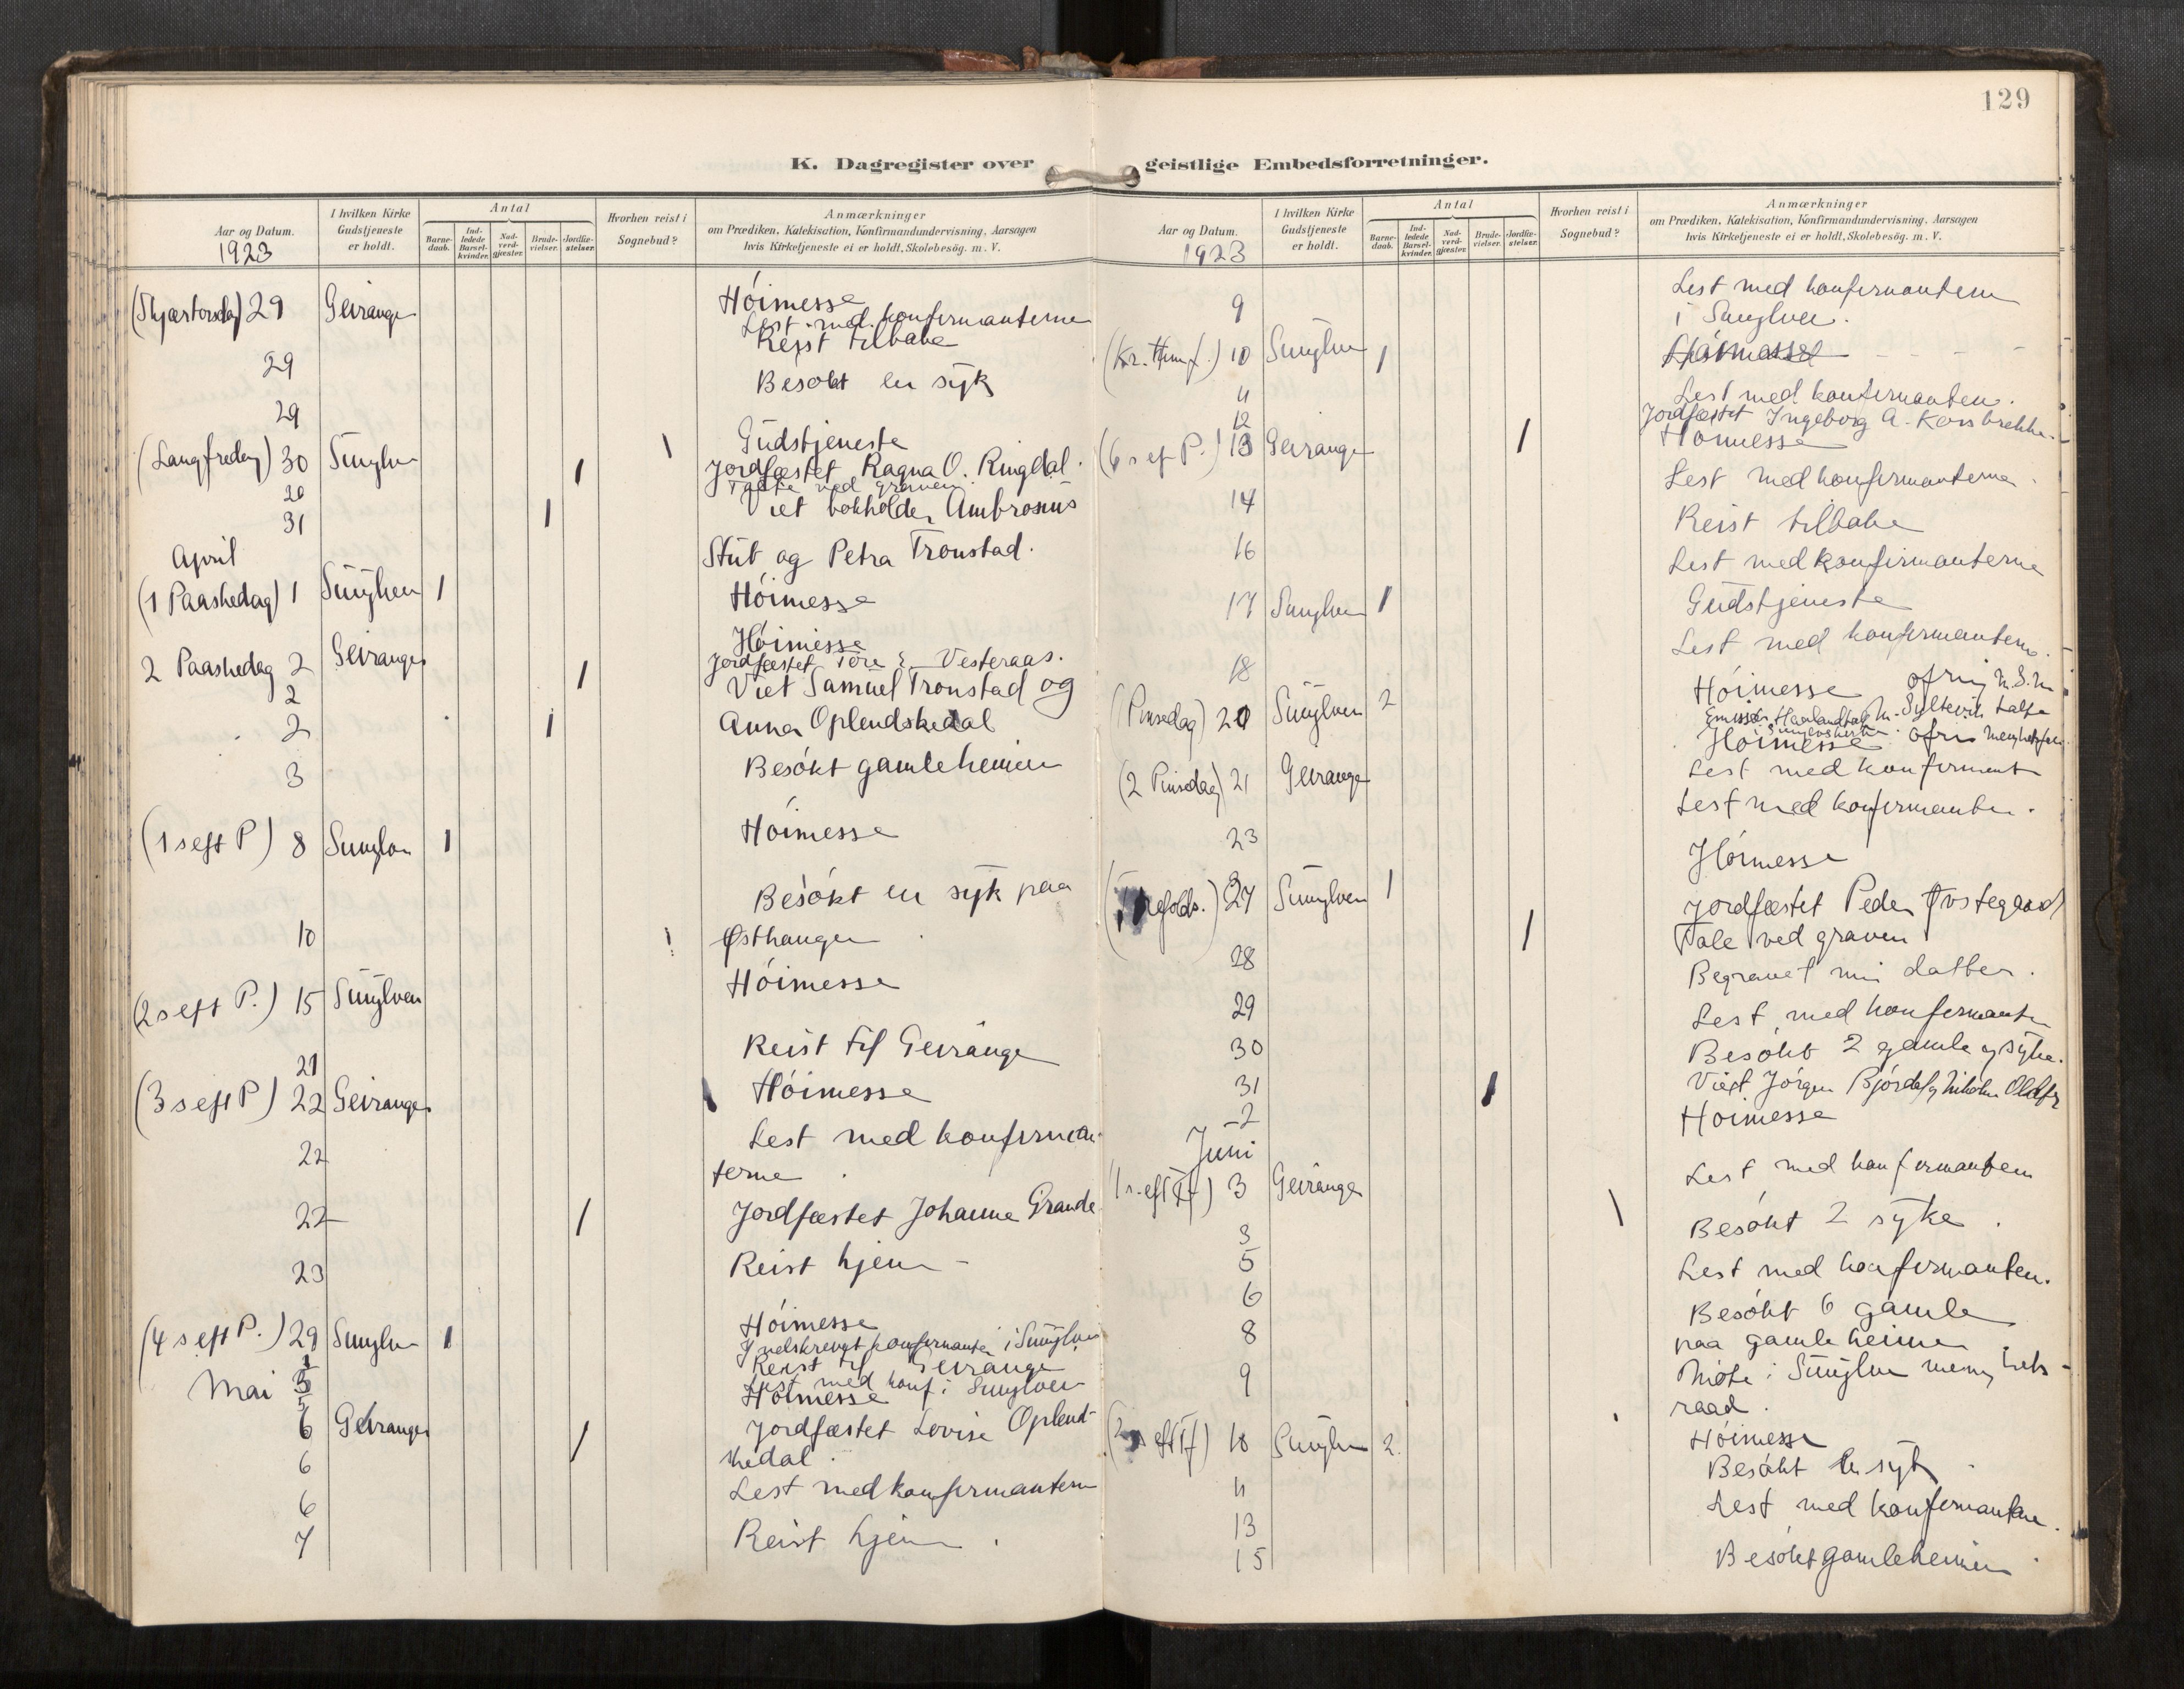 129
K. Dagregister over geistlige Embedsforretninger.
Aar og Datum.
1923
I hvilken Kirke
Gudstjeneste
er holdt.
Antal
Barne-
daab.
Ind-
ledede
Barsel-
kvinder.
Nad-
verd-
gjæster.
Brude-
vielser.
Jordfæ-
stelser.
Hvorhen reist i
Sognebud?
Anmærkninger
om Prædiken, Katekisation, Konfirmandundervisning, Aarsagen
hvis Kirketjeneste ei er holdt, Skolebesög. m. V.
(Skjærtorsdag) 29 Geiranger Höimesse
Lest med konfirmanterne
29 Reist tilbake
29 Besökt en syk
(Langfredag) 30 Sunylven Gudstjeneste
30 1 Jordfæstet Ragna O. Ringdal.
Talte ved graven.
31 1 Viet bokholder Ambrosius
Stut og Petra Tronstad.
April
(1 Paaskedag) 1 Sunylven 1 Höimesse
2 Paaskedag 2 Geiranger Höimesse
2 1 Jordfæstet Tore E. Vesteraas.
2 1 Viet Samuel Tronstad og
Anna Oplendskedal
3 Besökt gamleheimen
(1 s eft P) 8 Sunylven 1 Höimesse
10 Besökt en syk paa
Østhaugen
(2 s eft P.) 15 Sunylven Höimesse
21 Reist til Geiranger
(3 s eft P) 22 Geiranger Höimesse
22 Lest med konfirman-
terne
22 1 Jordfæstet Johanne Grande
23 Reist hjem
(4 s eft P.) 29 Sunylven 1 Höimesse
Indskrevet konfirmanter i Sunylven
Mai Reist til Geiranger
Lest med konf. i Sunylven
6 Geiranger Höimesse
6 1 Jordfæstet Lovise Oplend-
skedal
6 Lest med konfirmanterne
7 Reist hjem.
Aar og Datum.
1923
I hvilken Kirke
Gudstjeneste
er holdt.
Antal
Barne-
daab.
Ind-
ledede
Barsel-
kvinder.
Nad-
verd-
gjæster.
Brude-
vielser.
Jordfæ-
stelser.
Hvorhen reist i
Sognebud?
Anmærkninger
om Prædiken, Katekisation, Konfirmandundervisning, Aarsagen
hvis Kirketjeneste ei er holdt, Skolebesög. m. V.
9 Lest med konfirmanterne
i Sunylven.
(Kr. Himf.) 10 Sunylven 1 Höimesse
11 Lest med konfirmanten.
12 1 Jordfæstet Ingeborg A. Korsbrekke.
(6 s ef P.) 13 Geiranger Höimesse
14 Lest med konfirmanterne.
Reist tilbake
16 Lest med konfirmanterne
17 Sunylven 1 Gudstjeneste
18 Lest med konfirmanterne.
(Pinsedag) 20 Sunylven 2 Höimesse
talte
(2 Pinsedag) 21 Geiranger Höimesse
Lest med konfirmant
23 Lest med konfirmanten.
27 Sunylven 1 Höimesse
28 1 Jordfæstet Peder
Tale ved graven
29 Begravet min datter.
30 Lest med konfirmanten
31 Besökt 2 gamle og syke.
2 1 Viet Jörgen
Juni
(1 s. eft Tf) 3 Geiranger Höimesse
3 Lest med konfirmanten
5 Besökt 2 syke.
6 Lest med konfirmanten.
8 Besökt 6 gamle
paa gamleheimen
9 Möte i Sunylven menighets-
raad.
(2 s eft Tf) 10 Sunylven 2. Höimesse
11 Besökt en syk
13 Lest med konfirmanterne.
15 Besökt gamleheimen